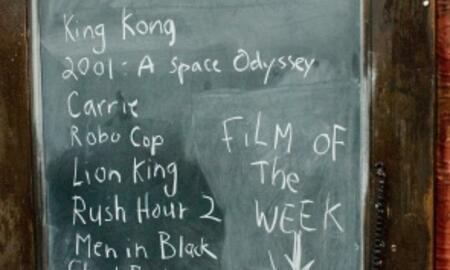 King Kong
2001: A Space Odyssey
Carrie
Robo Cop
Lion King
Rush Hour 2
Men in Black
FiLM OF
The
WEEK